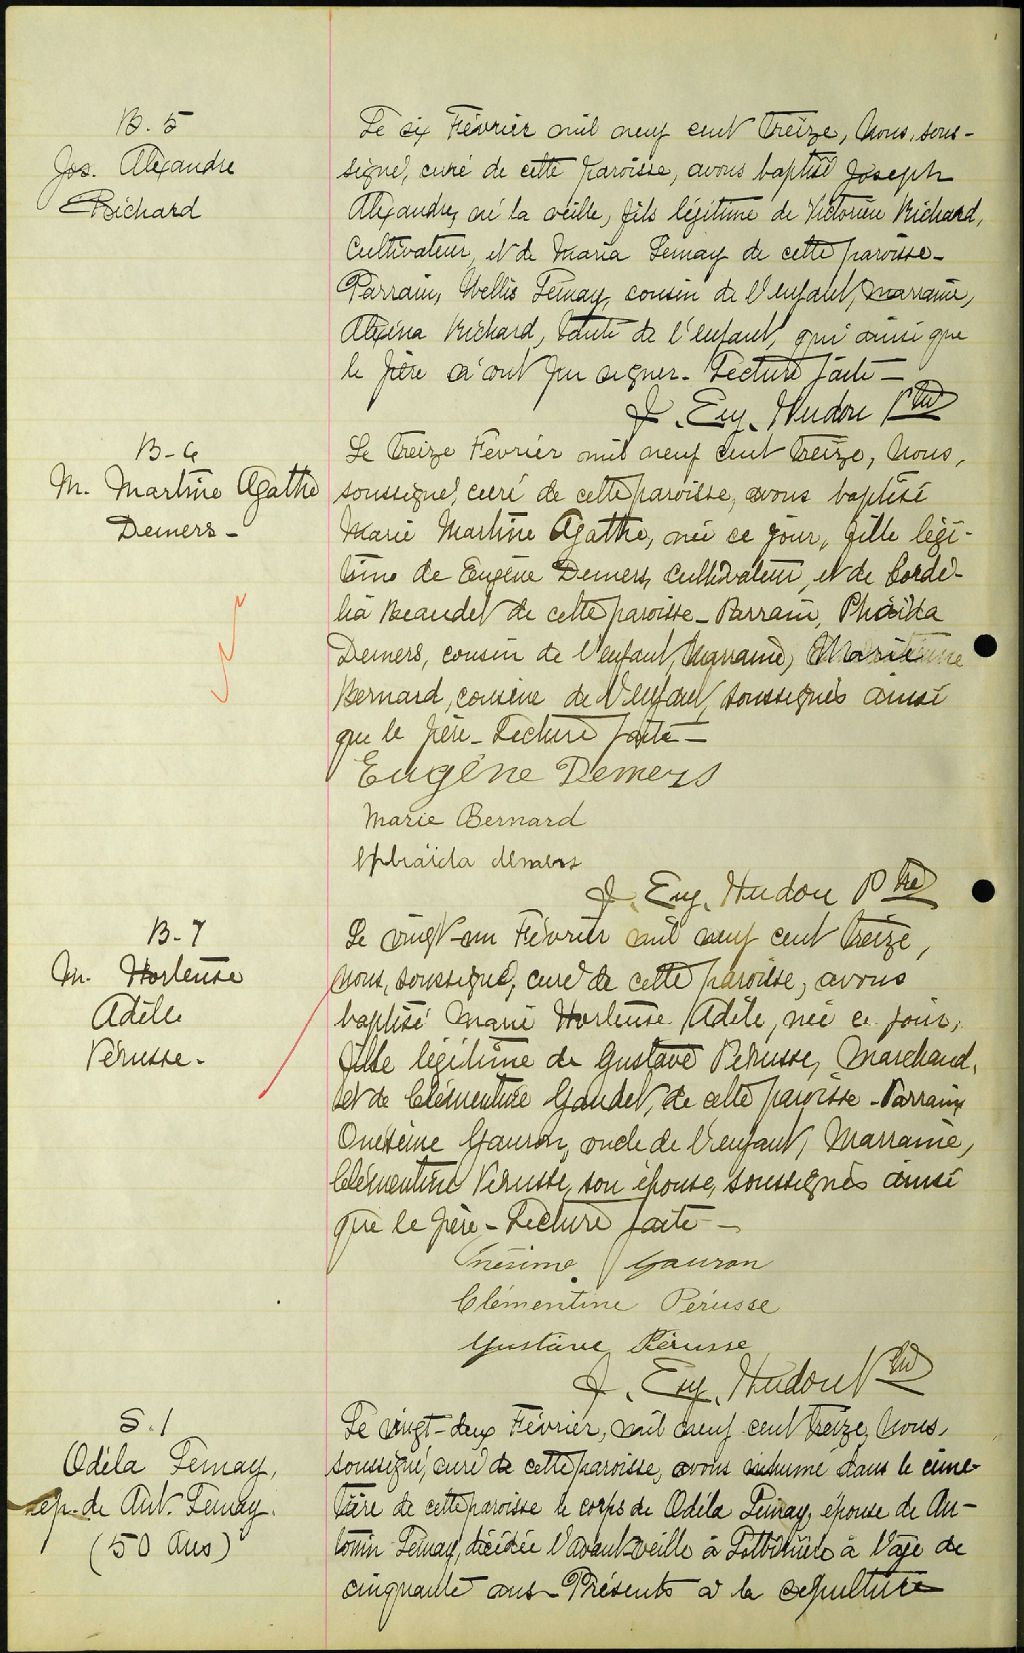 B. 5
Jos. Alexandre
Richard
Le six Février mil neuf cent treize, Nous, sous-
signé, curé de cette paroisse, avons baptisé Joseph
Alexandre, né la veille, fils légitime de Victorien Richard,
Cultivateur, et de Maria Lemay de cette paroisse-
Parrain, Wellis Lemay, cousin de l'enfant, marraine,
Alexina Richard, tante de l'enfant, qui ainsi que
le père n'ont pu signer. Lecture faite—
J. Eug. Hudon Ptre
B-6
M. Martine Agathe
Demers-
Le treize Février mil neuf cent treize, Nous,
soussigné, curé de cette paroisse, avons baptisé
Marie Martine Agathe, née ce jour, fille légi-
time de Eugène Demers, cultivateur, et de Cordé-
lia Beaudet de cette paroisse-Parrain,
Demers, cousin de l'enfant, Marraine,
Bernard, cousine de l'enfant, soussignés ainsi
que le père-Lecture faite—
Eugène Demers
Marie Bernard
demers
J. Eug. Hudon Ptre
B-7
M. Hortense
Adèle
Pérusse-
Le vingt-un Février mil neuf cent treize,
Nous, soussigné, curé de cette paroisse, avons
baptisé Marie Hortense Adèle, née ce jour,
fille légitime de Gustave Pérusse, Marchand,
et de Clémentine Gaudet, de cette paroisse-Parrain
Onésime Gauron, oncle de l'enfant, Marraine,
Clémentine Pérusse, son épouse, soussignés ainsi
que le père-Lecture faite—
Onésime Gauron
Clémentine Pérusse
Gustave Pérusse
J. Eug. Hudon Ptre
S. 1
Odéla Lemay,
ép. de Ant. Lemay.
(50 ans)
Le vingt-deux Février, mil neuf cent treize, Nous,
soussigné, curé de cette paroisse, avons inhumé dans le cime-
tière de cette paroisse le corps de Odéla Lemay, épouse de An-
tonin Lemay, décédée l'avant-veille à Lotbinière à l'âge de
cinquante ans-Présents à la sépulture